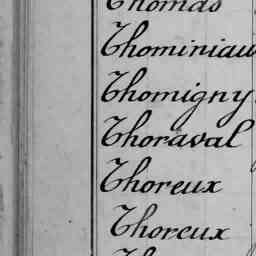 Thomas
Thominiau
Thomigny
Thoraval
Thoreux
Thoreux